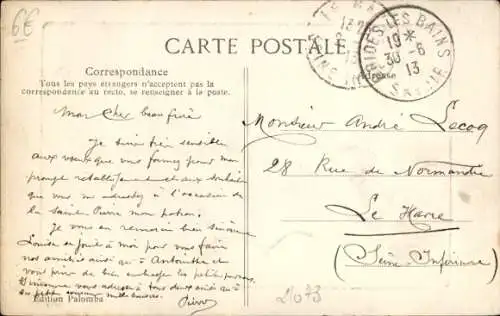 6€
CARTE POSTALE
BRIDES-LES-BAINS
19 *
30 -6
13
SAVOIE
Correspondance
Tous les pays étrangers n'acceptent pas la
correspondance au recto, se renseigner à la poste.
Adresse
Mon cher beau frère
Je suis bien sensible
aux vœux que vous formez pour mon
prompt rétablissement et aux souhaits
que vous m'adressez à l'occasion de
la Saint Pierre mon patron.
Je vous en remercie bien sincèrement
Louise se joint à moi pour vous faire
nos amitiés ainsi qu'à Antoinette et
vous prier de bien embrasser les petits
vous adresse à tous deux ainsi qu'à
mille baisers.
Pierre
Monsieur André Lecoq
28 Rue de Normandie
Le Havre
(Seine Inférieure)
Edition Palomba
21073